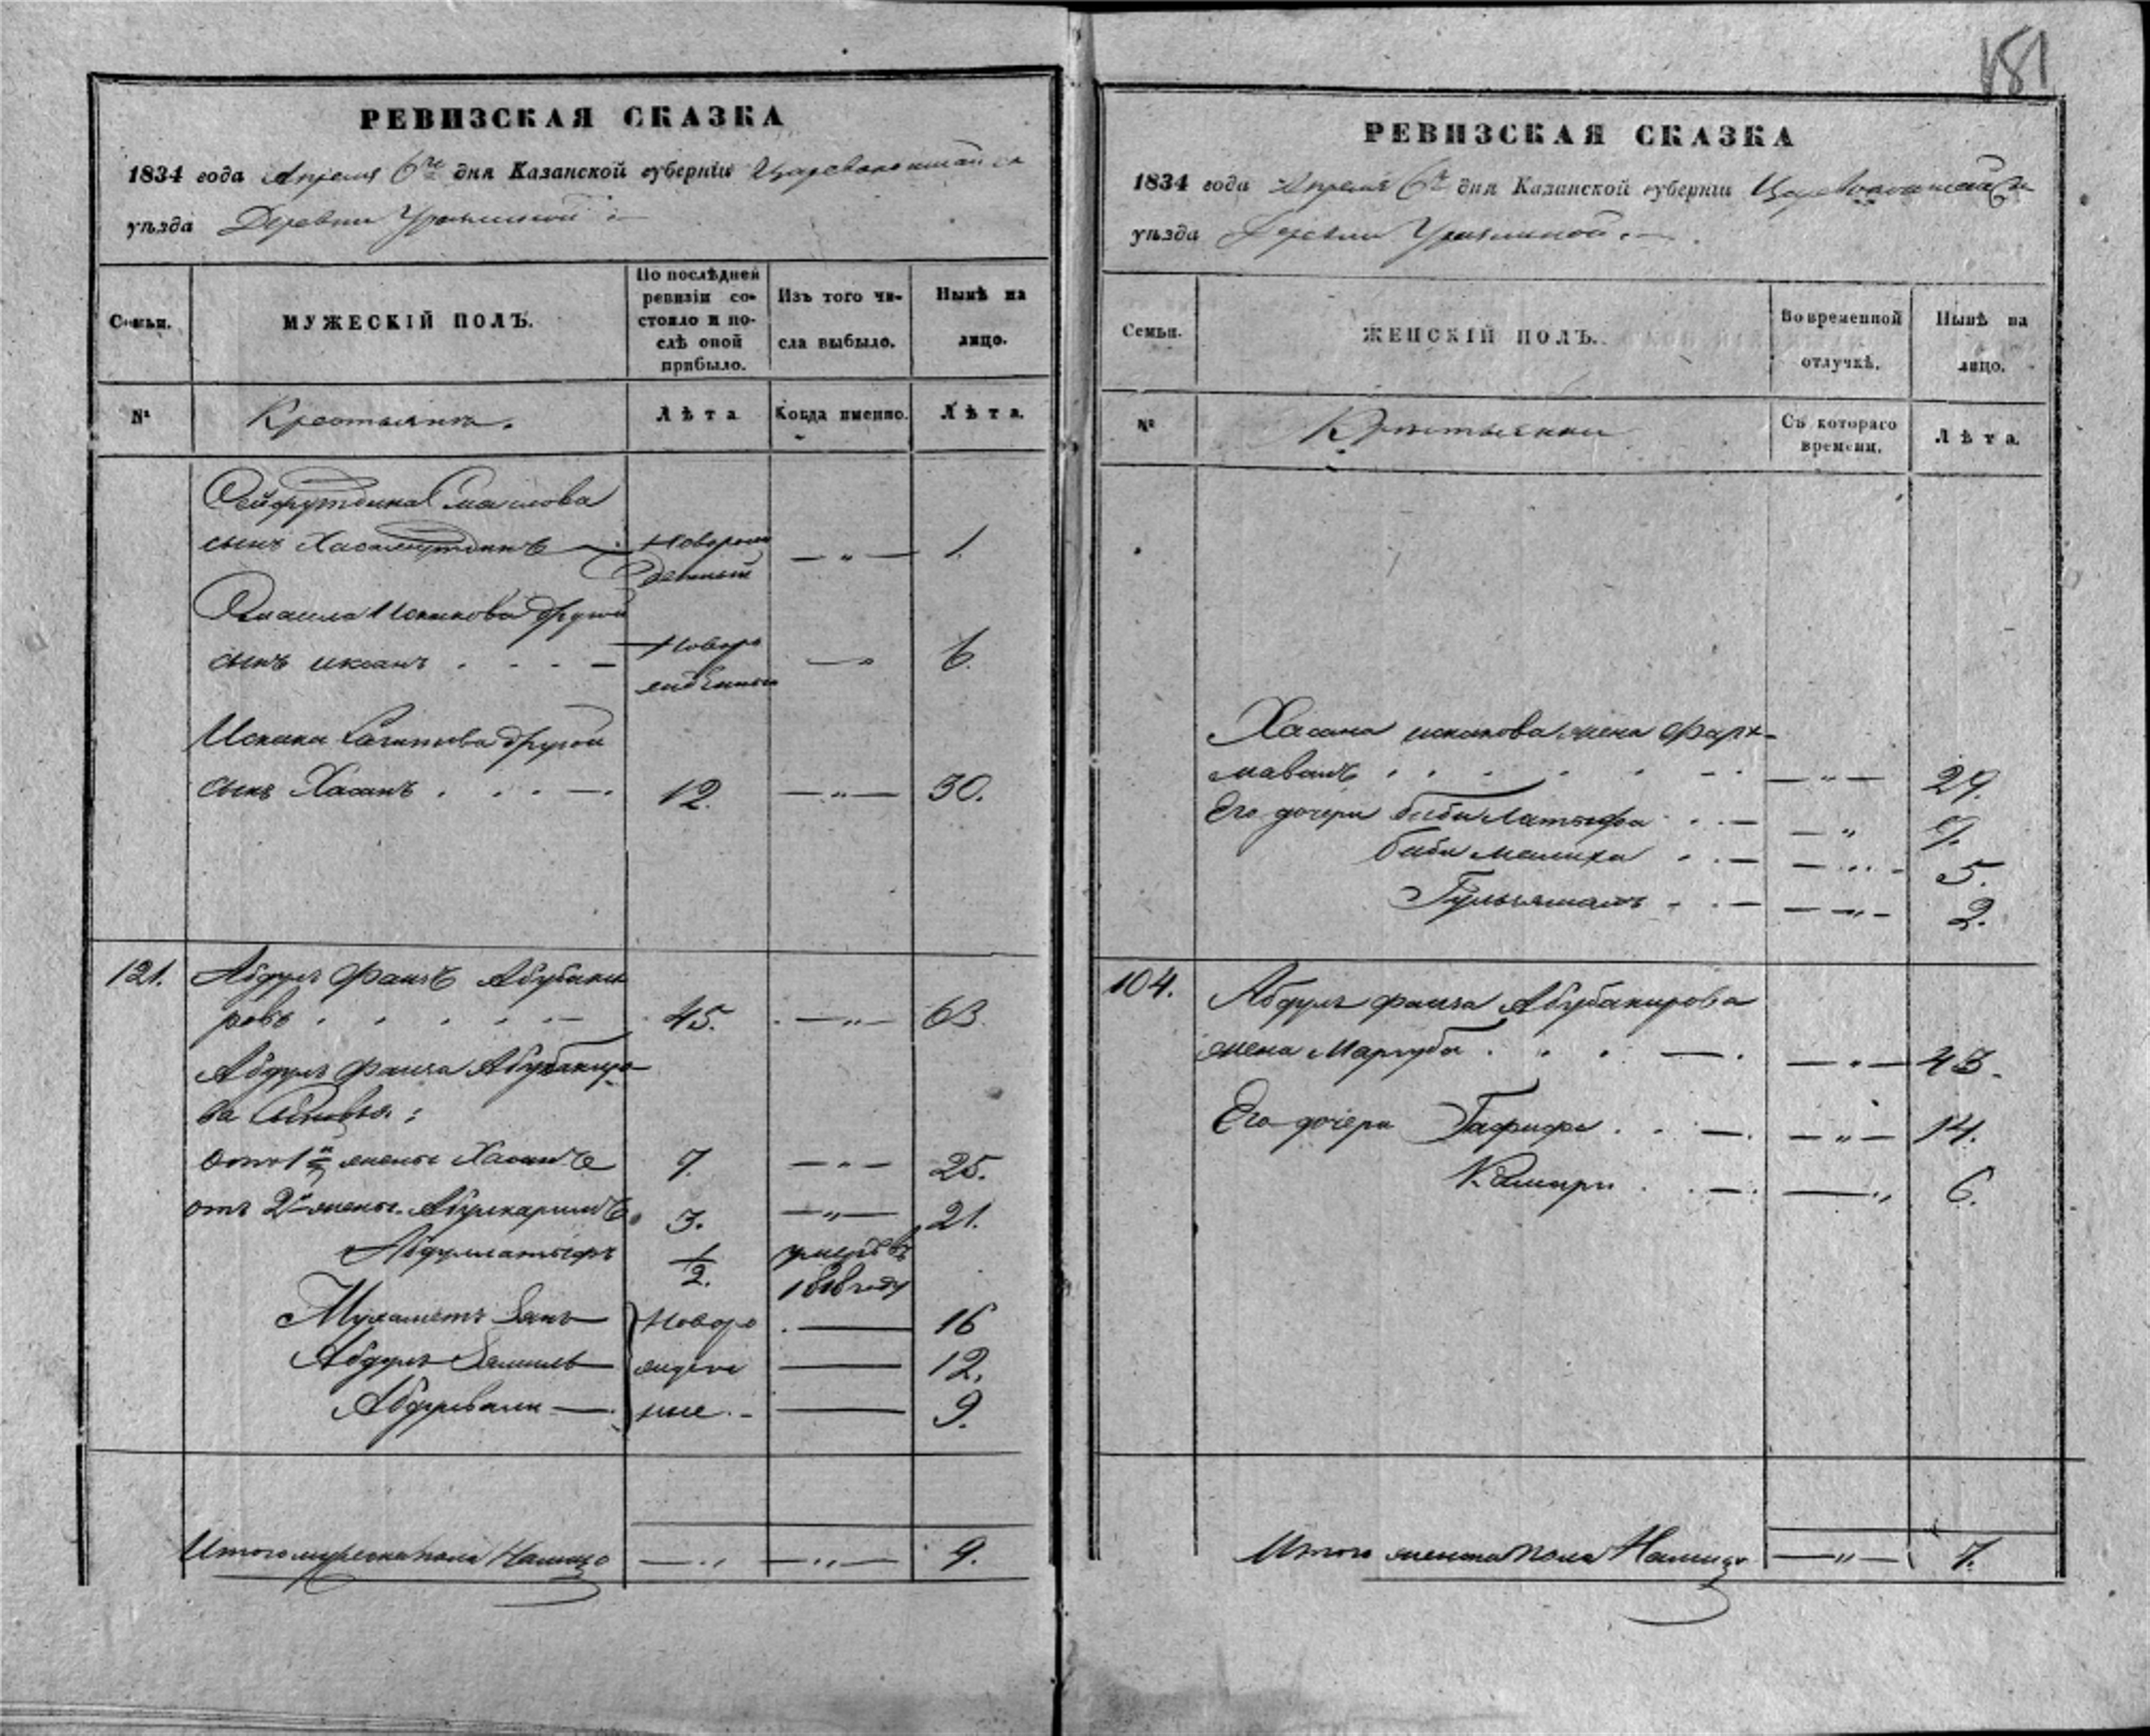 181
РЕВИЗСКАЯ СКАЗКА
1834 года Апреля 6го дня Казанской губерніи Царевококшайск
уѣзда Деревни
Семьи.
МУЖЕСКІЙ ПОЛЪ.
По послѣдней
ревизіи со-
стояло и по-
слѣ оной
прибыло.
Изъ того чи-
сла выбыло.
Нынѣ на
лицо.
№
Крестьянъ.
Лѣта
Когда именно.
Лѣта.
Сейфутдина Смаилова
сынъ Хасамутдинъ — Новорож 1.
денный
Смаила Искакова другой
сынъ иксанъ . . . — Новоро — 6.
жденной
Искака Сагитова другой
сынъ Хасанъ . . . — 12. — „ — 30.
121. Абдулъ Фаизъ Абубаки
ровъ . . . . . — 45. — „ — 63.
Абдулъ фаиза Абубакиро
ва Сыновья:
отъ 1й жены Хасанъ 7. — „ — 25.
отъ 2й жены. Абулкаримъ 3. — „ — 21.
Абдуллатыфъ 1/2. умеръ въ
1818 году
Мухаметъ Зянъ Новоро — 16
Абдулъ Зямиль ждены — 12.
Абдулвали — ные. — 9.
Итого мужеска пола Налицо — „ — „ — 9.
РЕВИЗСКАЯ СКАЗКА
1834 года Апреля 6го дня Казанской губерніи Царевококшайск
уѣзда Деревни
Семьи.
ЖЕНСКІЙ ПОЛЪ.
Во временной
отлучкѣ.
Нынѣ на
лицо.
№
Крестьянки
Съ котораго
времени.
Лѣта.
Хасана искакова жена Фарх-
мавашъ . . . . . — — „ — 29.
Его дочери биби Латыфа . . — — „ 9.
биби малиха . . — — „ — 5.
. . — — „ — 2.
104. Абдулъ фаиза Абубакирова
жена Маргуба . . . — . — „ — 43.
Его дочери Гафифа . . — . — „ — 14.
Камари . . — . — „ 6.
Итого женска пола Налицо — „ — 7.